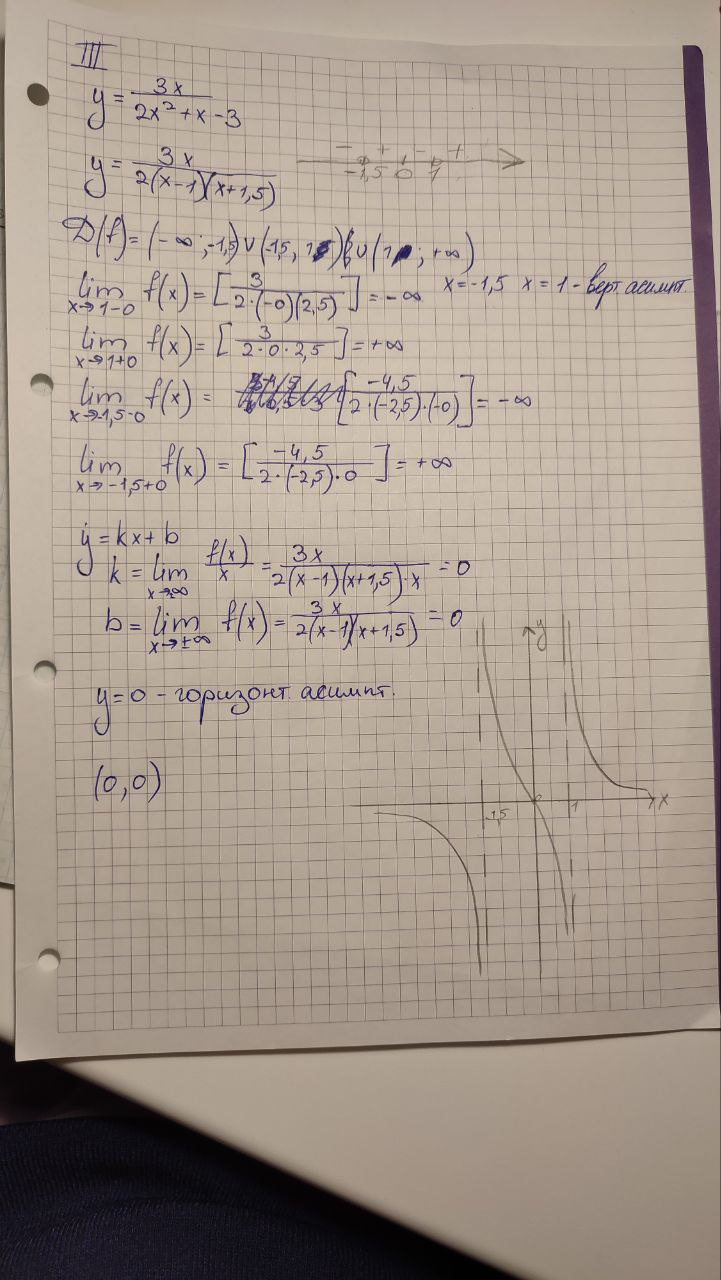 III
y = 3x / (2x² + x - 3)
y = 3x / (2(x-1)(x+1,5))
- + - +
-1,5 0 1
D(f) = (-∞; -1,5) ∪ (-1,5, 1) ∪ (1; +∞)
lim x→1-0 f(x) = [3 / (2·(-0)(2,5))] = -∞ x=-1,5 x=1 - верт. асимпт.
lim x→1+0 f(x) = [3 / (2·0·2,5)] = +∞
lim x→-1,5-0 f(x) = [-4,5 / (2·(-2,5)·(-0))] = -∞
lim x→-1,5+0 f(x) = [-4,5 / (2·(-2,5)·0)] = +∞
y = kx + b
k = lim x→±∞ f(x)/x = 3x / (2(x-1)(x+1,5)·x) = 0
b = lim x→±∞ f(x) = 3x / (2(x-1)(x+1,5)) = 0
y
y=0 - горизонт. асимпт.
(0,0)
-1,5 0 1 x